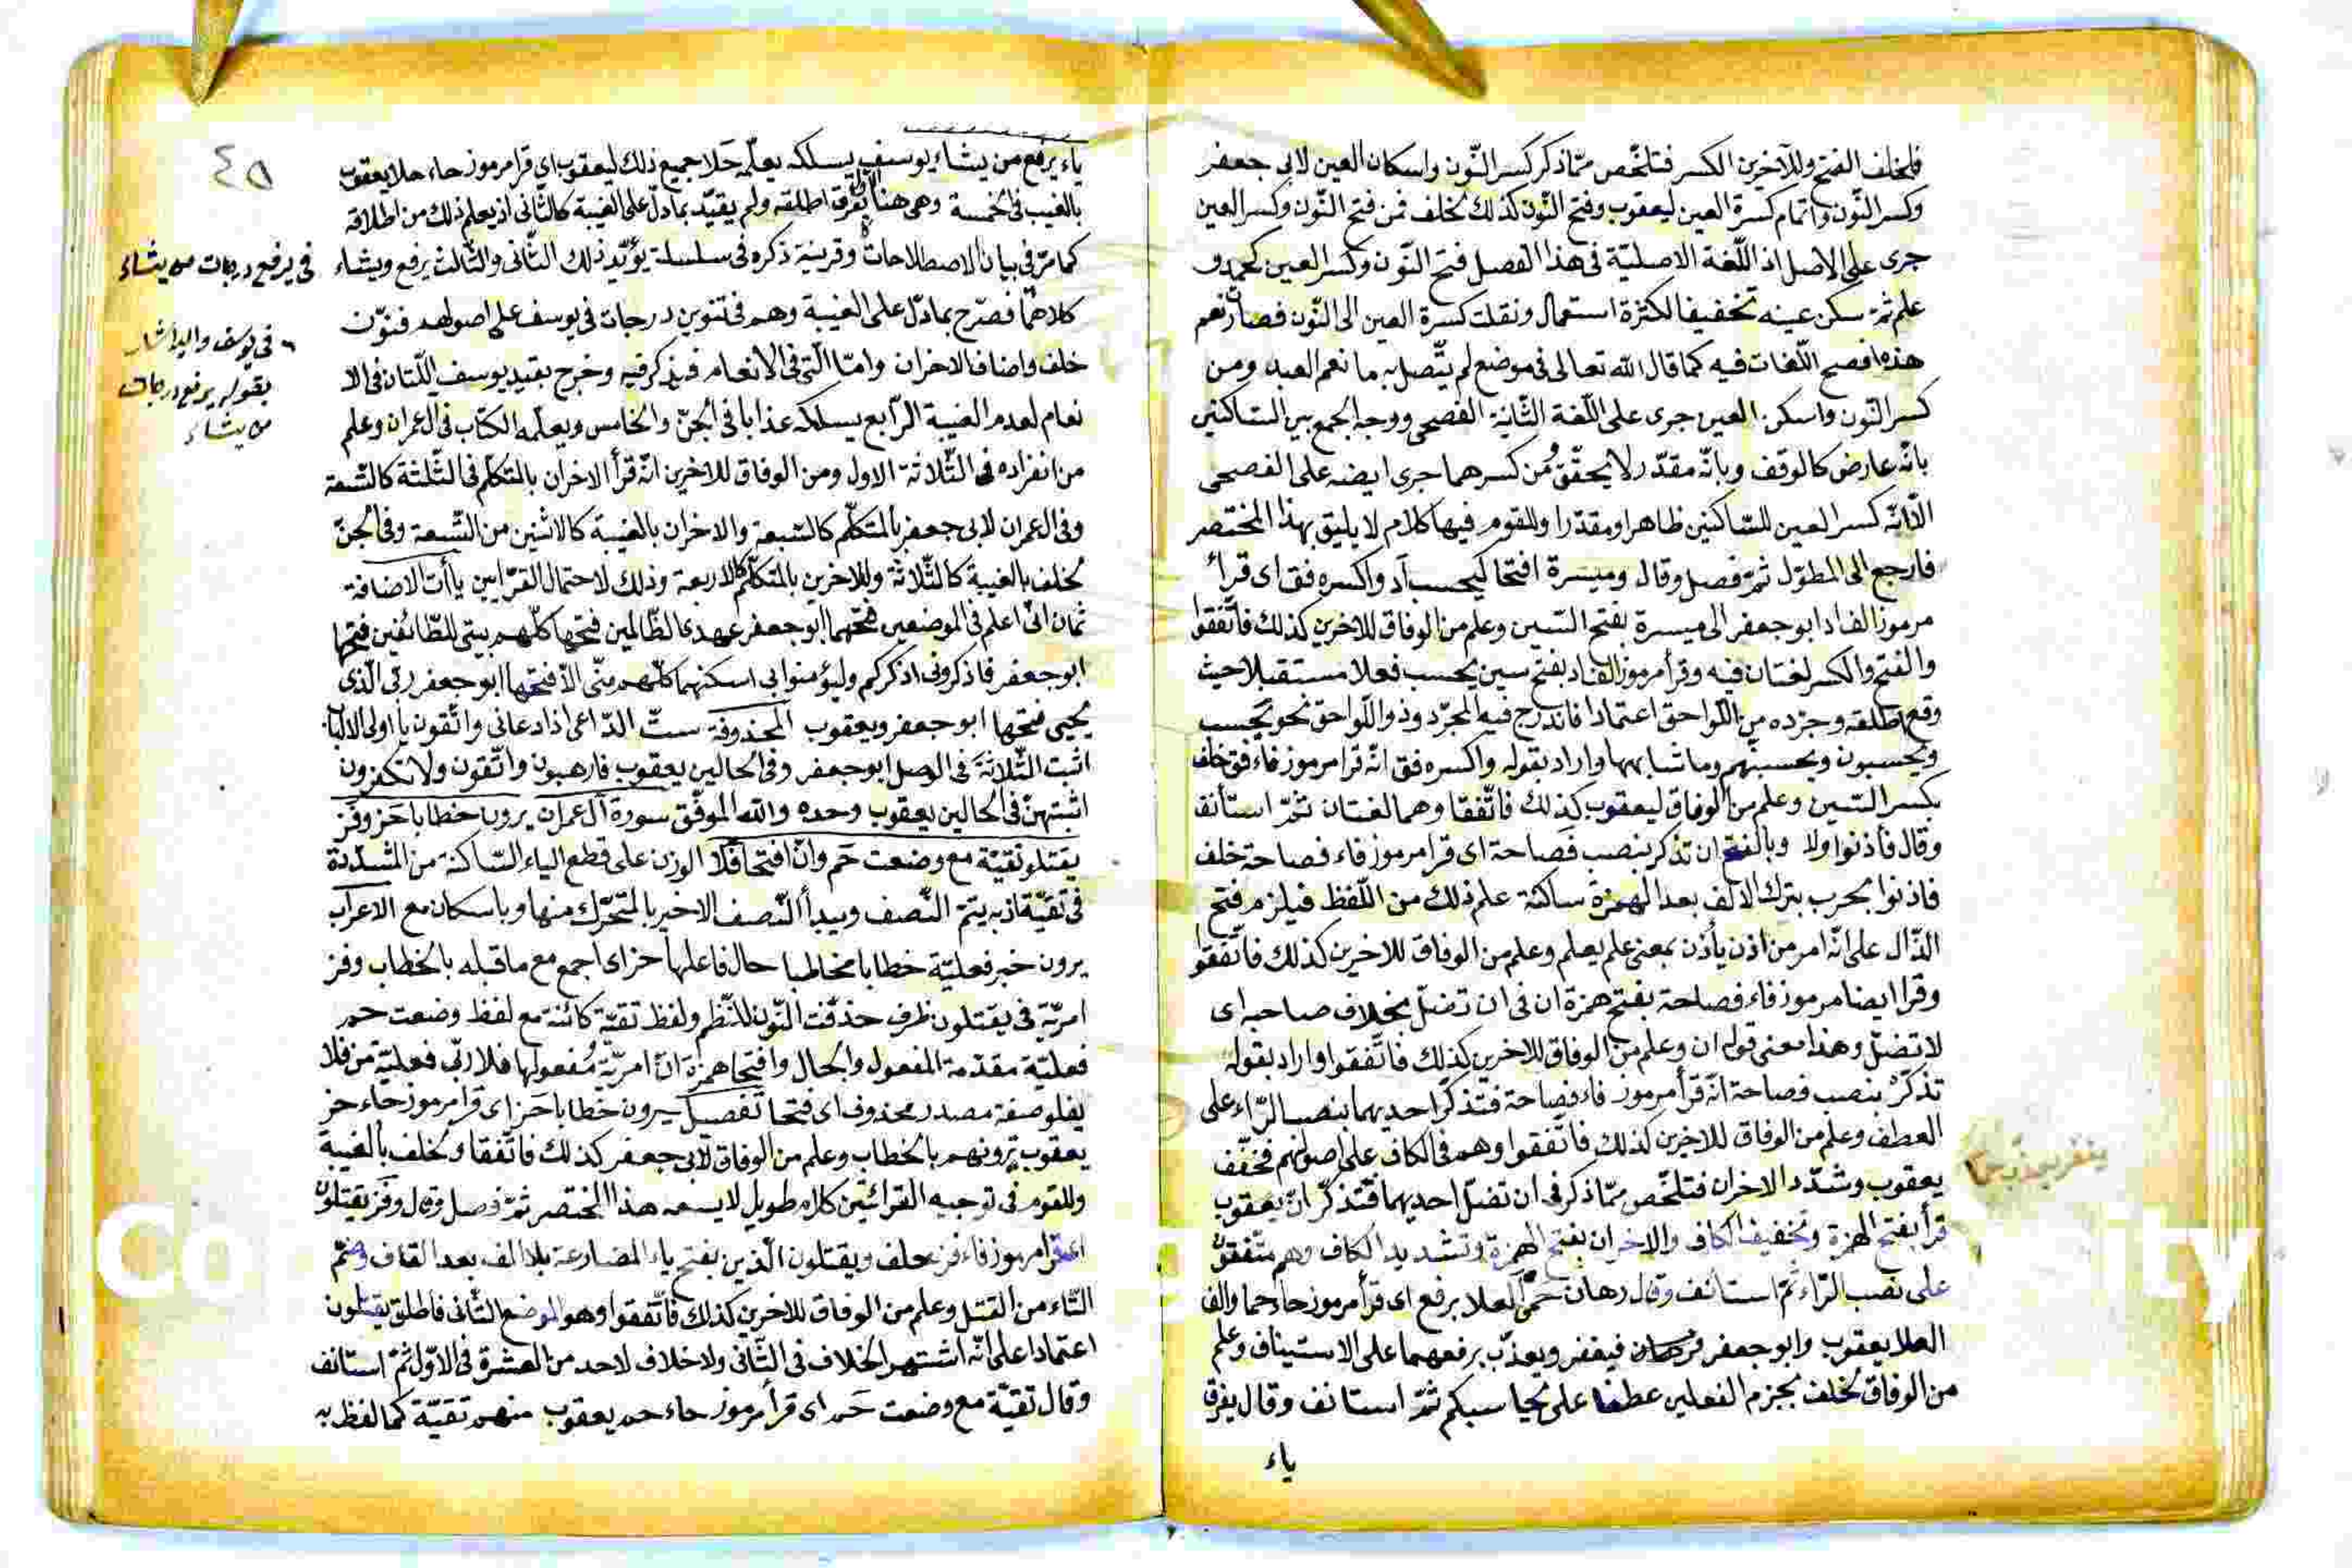 فلخلف الفتح وللآخرين الكسر فتلخّص ممّا ذكر كسر النّون واسكان العين لابى جعفر
وكسر النّون واتمام كسرة العين ليعقوب وفتح النّون كذلك لخلف فمن فتح النّون وكسر العين
جرى على الاصل اذ اللّغة الاصليّة فى هذا الفصل فتح النّون وكسر العين كحمد و
علم ثمّ سكن عينه تخفيفا لكثرة استعمال ونقلت كسرة العين الى النّون فصار نعم
هذه افصح اللّغات فيه كما قال الله تعالى فى موضع لم يتّصل به ما نعم العبد ومن
كسر النّون واسكن العين جرى على اللّغة الثّانية الفصحى ووجه الجمع بين السّاكنين
بانّه عارض كالوقف وبانّه مقدّر لا يحقّق ومن كسرهما جرى ايضه على الفصحى
الّا انّه كسر العين للسّاكنين ظاهرا ومقدّرا وللقوم فيها كلام لا يليق بهذا المختصر
فارجع الى المطوّل ثمّ فصل وقال وميسرة افتحا كيحسب أد واكسره فق اى قرأ
مرموز الف اد ابو جعفر الى ميسرة بفتح السّين وعلم من الوفاق للاخرين كذلك فاتّفقوا
والفتح والكسر لغتان فيه وقرأ مرموز الف اد بفتح سين يحسب فعلا مستقبلا حيث
وقع اطلقه وجرّده من اللّواحق اعتمادا فاندرج فيه المجرّد وذو اللّواحق نحو يحسب
ويحسبون ويحسبنّهم وما شابهها واراد بقوله واكسره فق انّه قرا مرموز فاء فق خلف
بكسر السّين وعلم من الوفاق ليعقوب كذلك فاتّفقا وهما لغتان ثمّ استأنف
وقال فأذنوا ولا وبالفتح ان تذكر بنصب فصاحة اى قرا مرموز فاء فصاحة خلف
فاذنوا بحرب بترك الالف بعد الهمزة ساكنة علم ذلك من اللّفظ فيلزم فتح
الذّال على انّه امر من اذن يأذن بمعنى علم يعلم وعلم من الوفاق للاخرين كذلك فاتّفقوا
وقرا ايضا مرموز فاء فصاحة بفتح همزة ان فى ان تضلّ بخلاف صاحبه اى
لا تضلّ وهذا معنى قوله ان وعلم من الوفاق للاخرين كذلك فاتّفقوا واراد بقوله
تذكر بنصب فصاحة انّه قرأ مرموز فاء فصاحة فتذكّر احديهما بنصب الرّاء على
العطف وعلم من الوفاق للاخرين كذلك فاتّفقوا وهم فى الكاف على اصولهم فخفّف
يعقوب وشدّد الاخران فتلخّص ممّا ذكر فى ان تضلّ احديهما فتذكّر انّ يعقوب
قرأ بفتح الهمزة وتخفيف الكاف والاخران بفتح الهمزة وتشديد الكاف وهم متّفقون
على نصب الرّاء ثمّ استأنف وقال رهان حمى العلا برفع اى قرأ مرموز حاء حما والف
العلا يعقوب وابو جعفر فيغفر ويعذّب برفعهما على الاستيناف وعلم
من الوفاق لخلف بجزم الفعلين عطفا على يحاسبكم ثمّ استأنف وقال يفرق
ياء
ياء يرفع من يشاء يوسف يسلكه يعلّمه حلا جميع ذلك ليعقوب اى قرا مرموز حاء حلا يعقوب
بالغيب فى الخمسة وهى هنا لا يفرق اطلقه ولم يقيّد بما دلّ على الغيبة كالثّانى اذ يعلم ذلك من اطلاقه
كما مرّ فى بيان الاصطلاحات وقرينة ذكره فى سلسلة يؤيّد ذلك الثّانى والثّالث يرفع ويشاء
كلاهما فصرّح بما دلّ على الغيبة وهم فى تنوين درجات فى يوسف على اصولهم فنوّن
خلف واضاف الاخران وامّا الّتى فى الانعام فيذكر فيه وخرج بقيد يوسف اللّتان فى الا
نعام لعدم الغيبة الرّابع يسلكه عذابا فى الجنّ والخامس ويعلّمه الكتاب فى ال عمران وعلم
من انفراده فى الثّلاثة الاول ومن الوفاق للاخرين انّه قرأ الاخران بالتكلّم فى الثّلثة كالسّبعة
وفى ال عمران لابى جعفر بالتكلّم كالسّبعة والاخران بالغيبة كالاثنين من السّبعة وفى الجنّ
لخلف بالغيبة كالثّلاثة وللاخرين بالمتكلّم كالاربعة وذلك لاحتمال القرّاءتين ياآت الاضافة
ثمان انّى اعلم فى الموضعين فتحهما ابو جعفر عهدى الظّالمين فتحها كلّهم بيتى للطّائفين فتحها
ابو جعفر فاذكرونى اذكركم وليؤمنوا بى اسكنهما كلّهم منّى الّا فتحها ابو جعفر ربّى الّذى
يحيى فتحها ابو جعفر ويعقوب المحذوفة ستّ الدّاعى اذا دعانى واتّقون يا اولى الالباب
اثبت الثّلاثة فى الوصل ابو جعفر وفى الحالين يعقوب فارهبون واتّقون ولا تكفرون
اثبتهنّ فى الحالين يعقوب وحده والله الموفّق سورة آل عمران يرون خطابا حز وفز
يقتلو تقيّة مع وضعت حم وانّ افتحا فلا الوزن على قطع الياء السّاكنة من المشدّدة
فى تقيّة اذ به يتمّ النّصف ويبدأ النّصف الاخير بالمتحرّك منها وباسكان مع الاعراب
يرون خبر فعليّة خطابا مخاطبا حال فاعلها حز اى اجمع مع ما قبله بالخطاب وفز
امريّة فى يقتلون ظرف حذفت النّون للنّظم ولفظ تقيّة كائنة مع لفظ وضعت حم
فعليّة مقدّمة المفعول والحال وافتحا همزة انّ امريّة ومفعولها فلا ربّى فعليّة من فلا
يفلو صفة مصدر محذوف اى فتحا تفصيل يرون خطابا حز اى قرا مرموز حاء حز
يعقوب ترونهم بالخطاب وعلم من الوفاق لابى جعفر كذلك فاتّفقا ولخلف بالغيبة
وللقوم فى توجيه القرائتين كلام طويل لا يسعه هذا المختصر ثمّ فصل وقال وفز يقتلون
اى قرا مرموز فاء فز خلف ويقتلون الّذين بفتح ياء المضارعة بلا الف بعد القاف وضمّ
التّاء من القتل وعلم من الوفاق للاخرين كذلك فاتّفقوا وهو الموضع الثّانى فاطلق يقتلون
اعتمادا على انّه اشتهر الخلاف فى الثّانى ولا خلاف لاحد من العشرة فى الاوّل ثمّ استأنف
وقال تقيّة مع وضعت حم اى قرأ مرموز حاء حم يعقوب منهم تقيّة كما لفظ به
٤٨
فى يرفع درجات من يشاء
فى يوسف واليه اشار
بقوله يرفع درجات
من يشاء